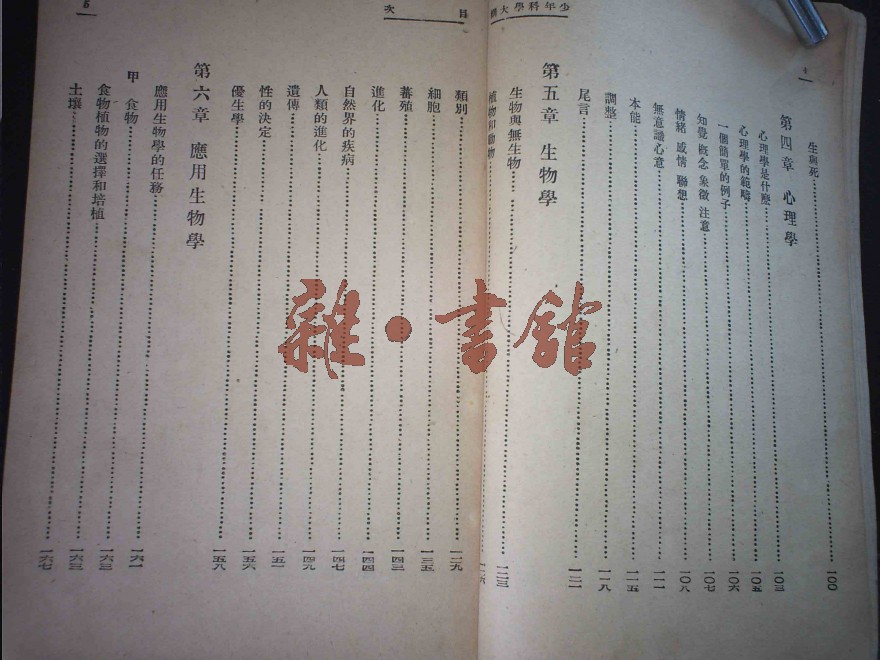 少年科學大綱
生與死 100
第四章 心理學
心理學是什麼 一〇三
心理學的範疇 一〇五
一個簡單的例子 一〇六
知覺 概念 象徵 注意 一〇七
情緒 感情 聯想 一〇八
無意識心意 一一一
本能 一一五
調整 一一八
尾言 一二一
第五章 生物學
生物與無生物 一二三
植物和動物 一二六
目次
類別 一二九
細胞 一三五
蕃殖 一四三
進化 一四四
自然界的疾病 一四七
人類的進化 一四九
遺傳 一五一
性的決定 一五六
優生學 一五八
第六章 應用生物學
應用生物學的任務 一六一
甲 食物
食物植物的選擇和培植 一六三
土壤 一六七
雜·書館